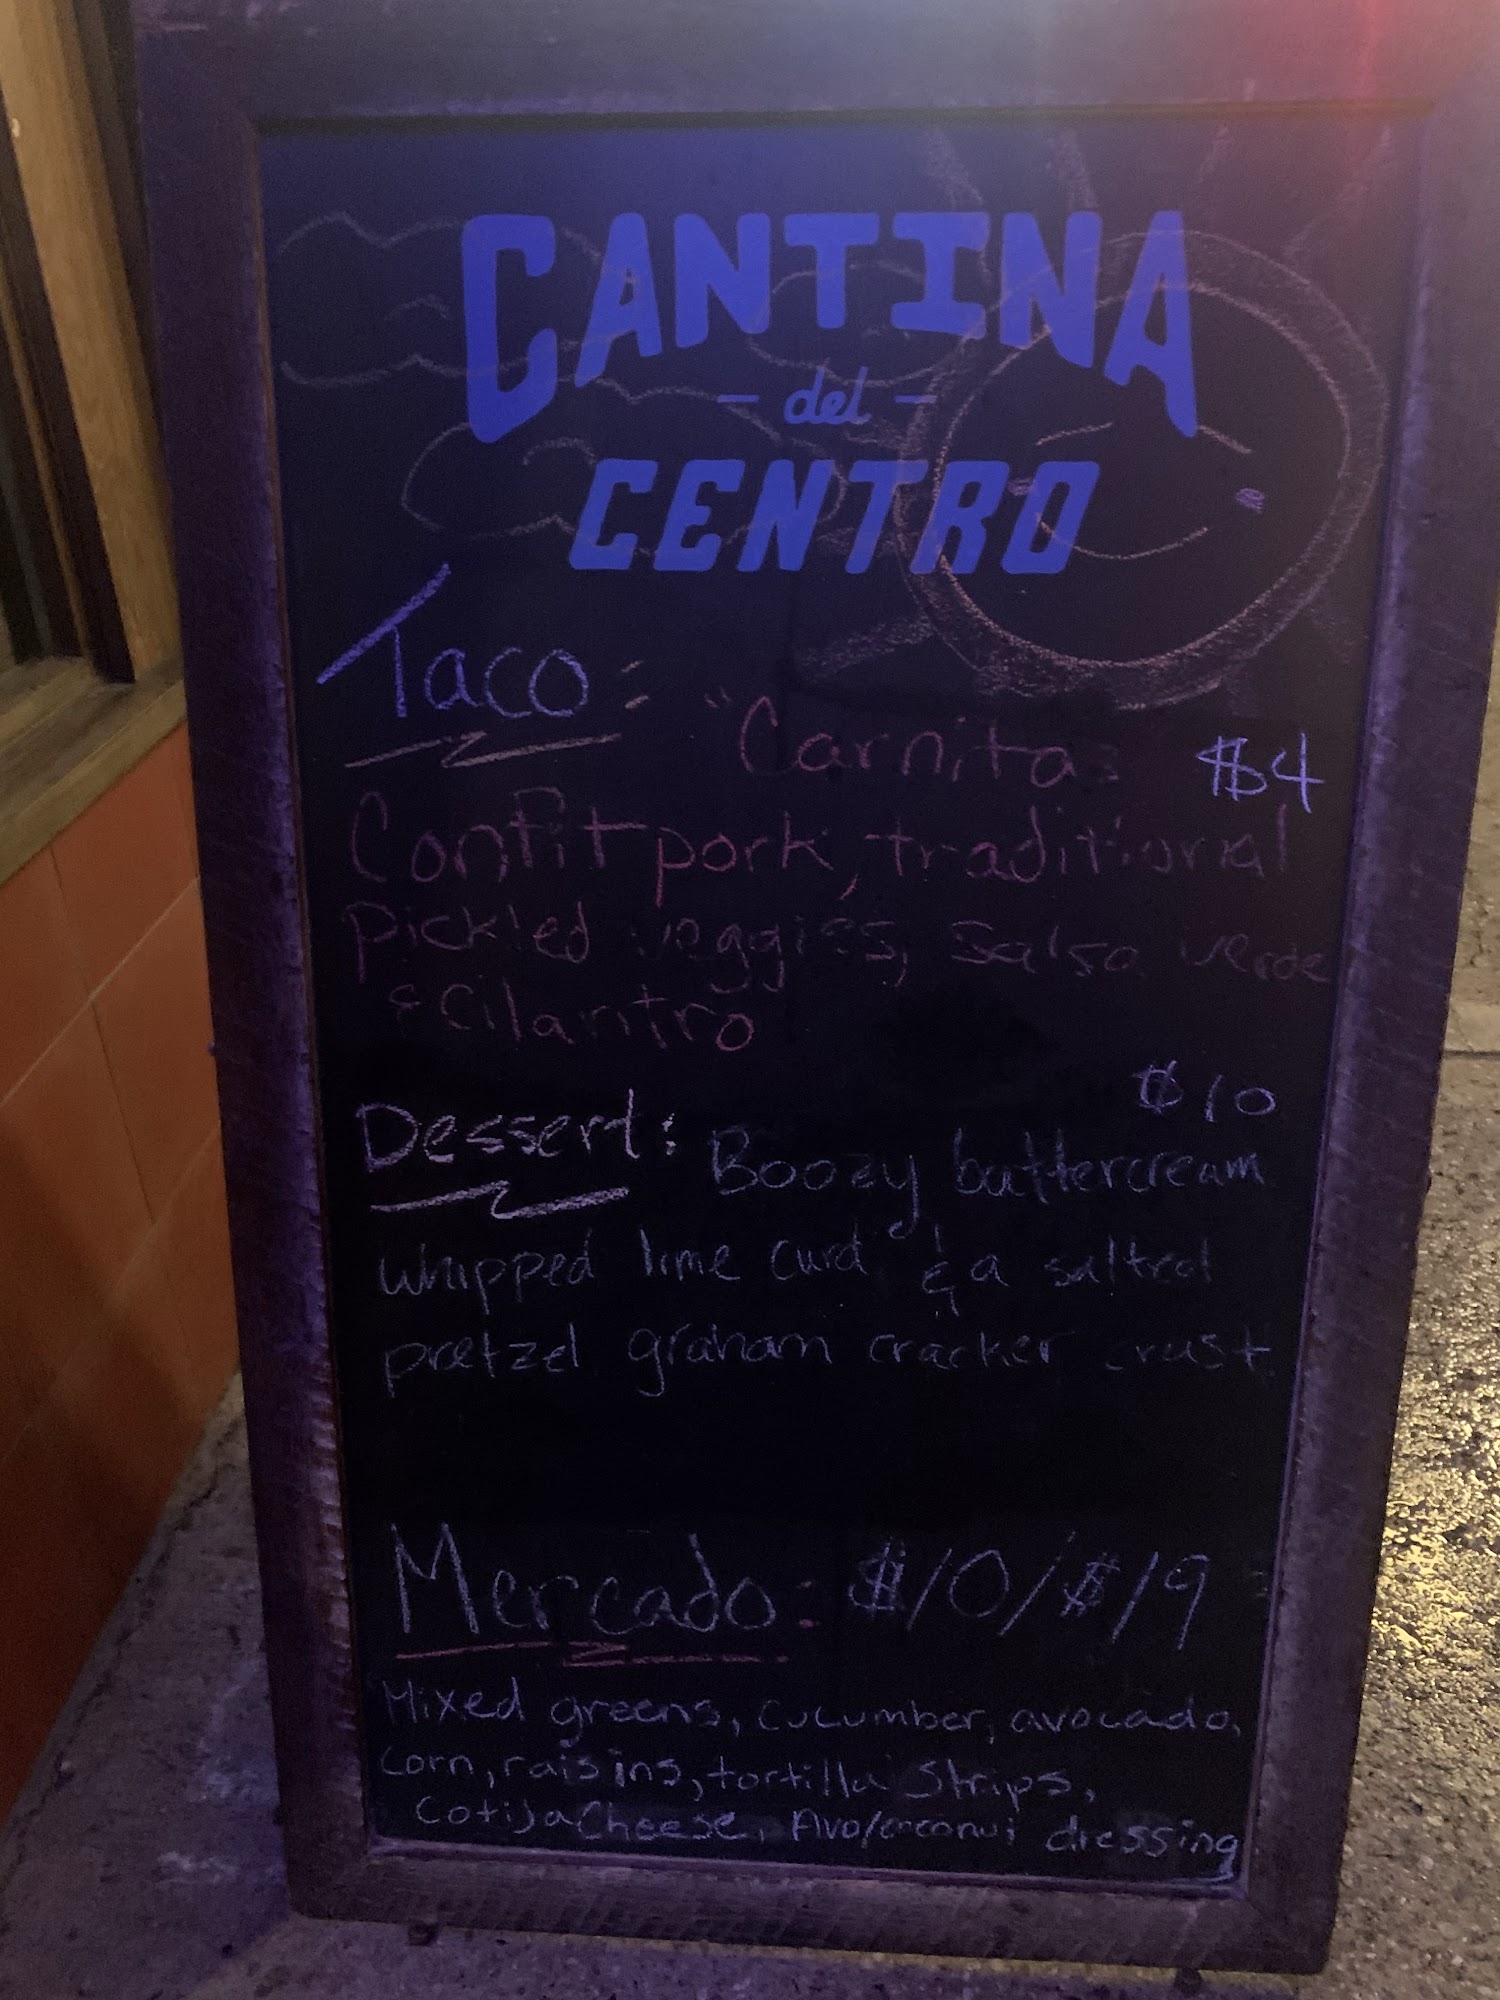 CANTINA
- del -
CENTRO
Taco:
"Carnitas $4
Confit pork, traditional
Pickled veggies, Salsa verde
& Cilantro
$10
Dessert: Boozy buttercream
whipped lime curd & a salted
pretzel graham cracker crust
Mercado: $10/$19
Mixed greens, cucumber, avocado,
corn, raisins, tortilla strips,
Cotija Cheese, Avo/coconut dressing